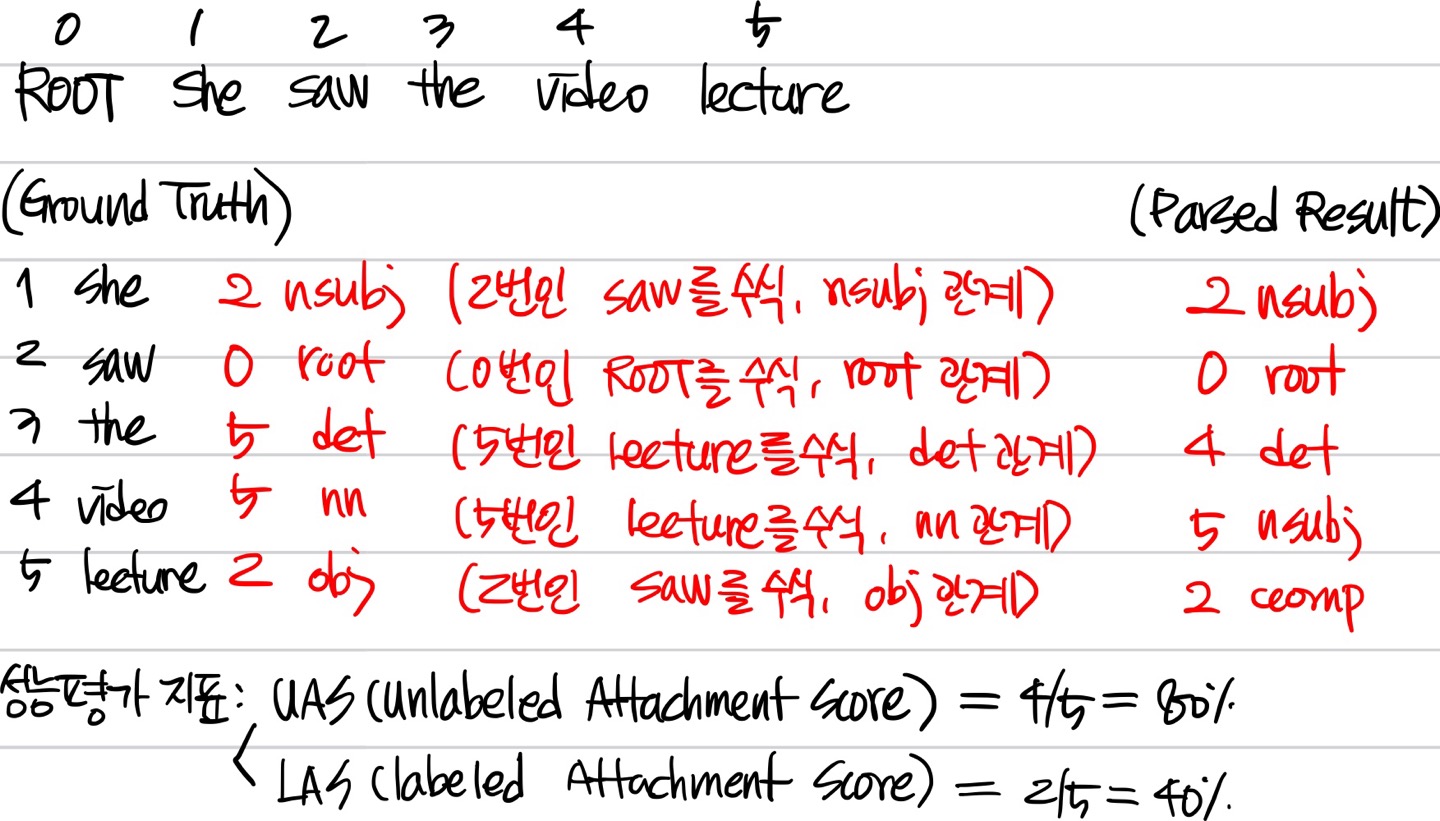 0 1 2 3 4 5
ROOT She saw the video lecture
(Ground Truth) (Parsed Result)
1 she 2 nsubj (2번인 saw를 수식, nsubj 관계) 2 nsubj
2 saw 0 root (0번인 ROOT를 수식, root 관계) 0 root
3 the 5 det (5번인 lecture를 수식, det 관계) 4 det
4 video 5 nn (5번인 lecture를 수식, nn 관계) 5 nsubj
5 lecture 2 obj (2번인 saw를 수식, obj 관계) 2 ccomp
성능평가 지표: UAS (Unlabeled Attachment Score) = 4/5 = 80%
LAS (labeled Attachment Score) = 2/5 = 40%